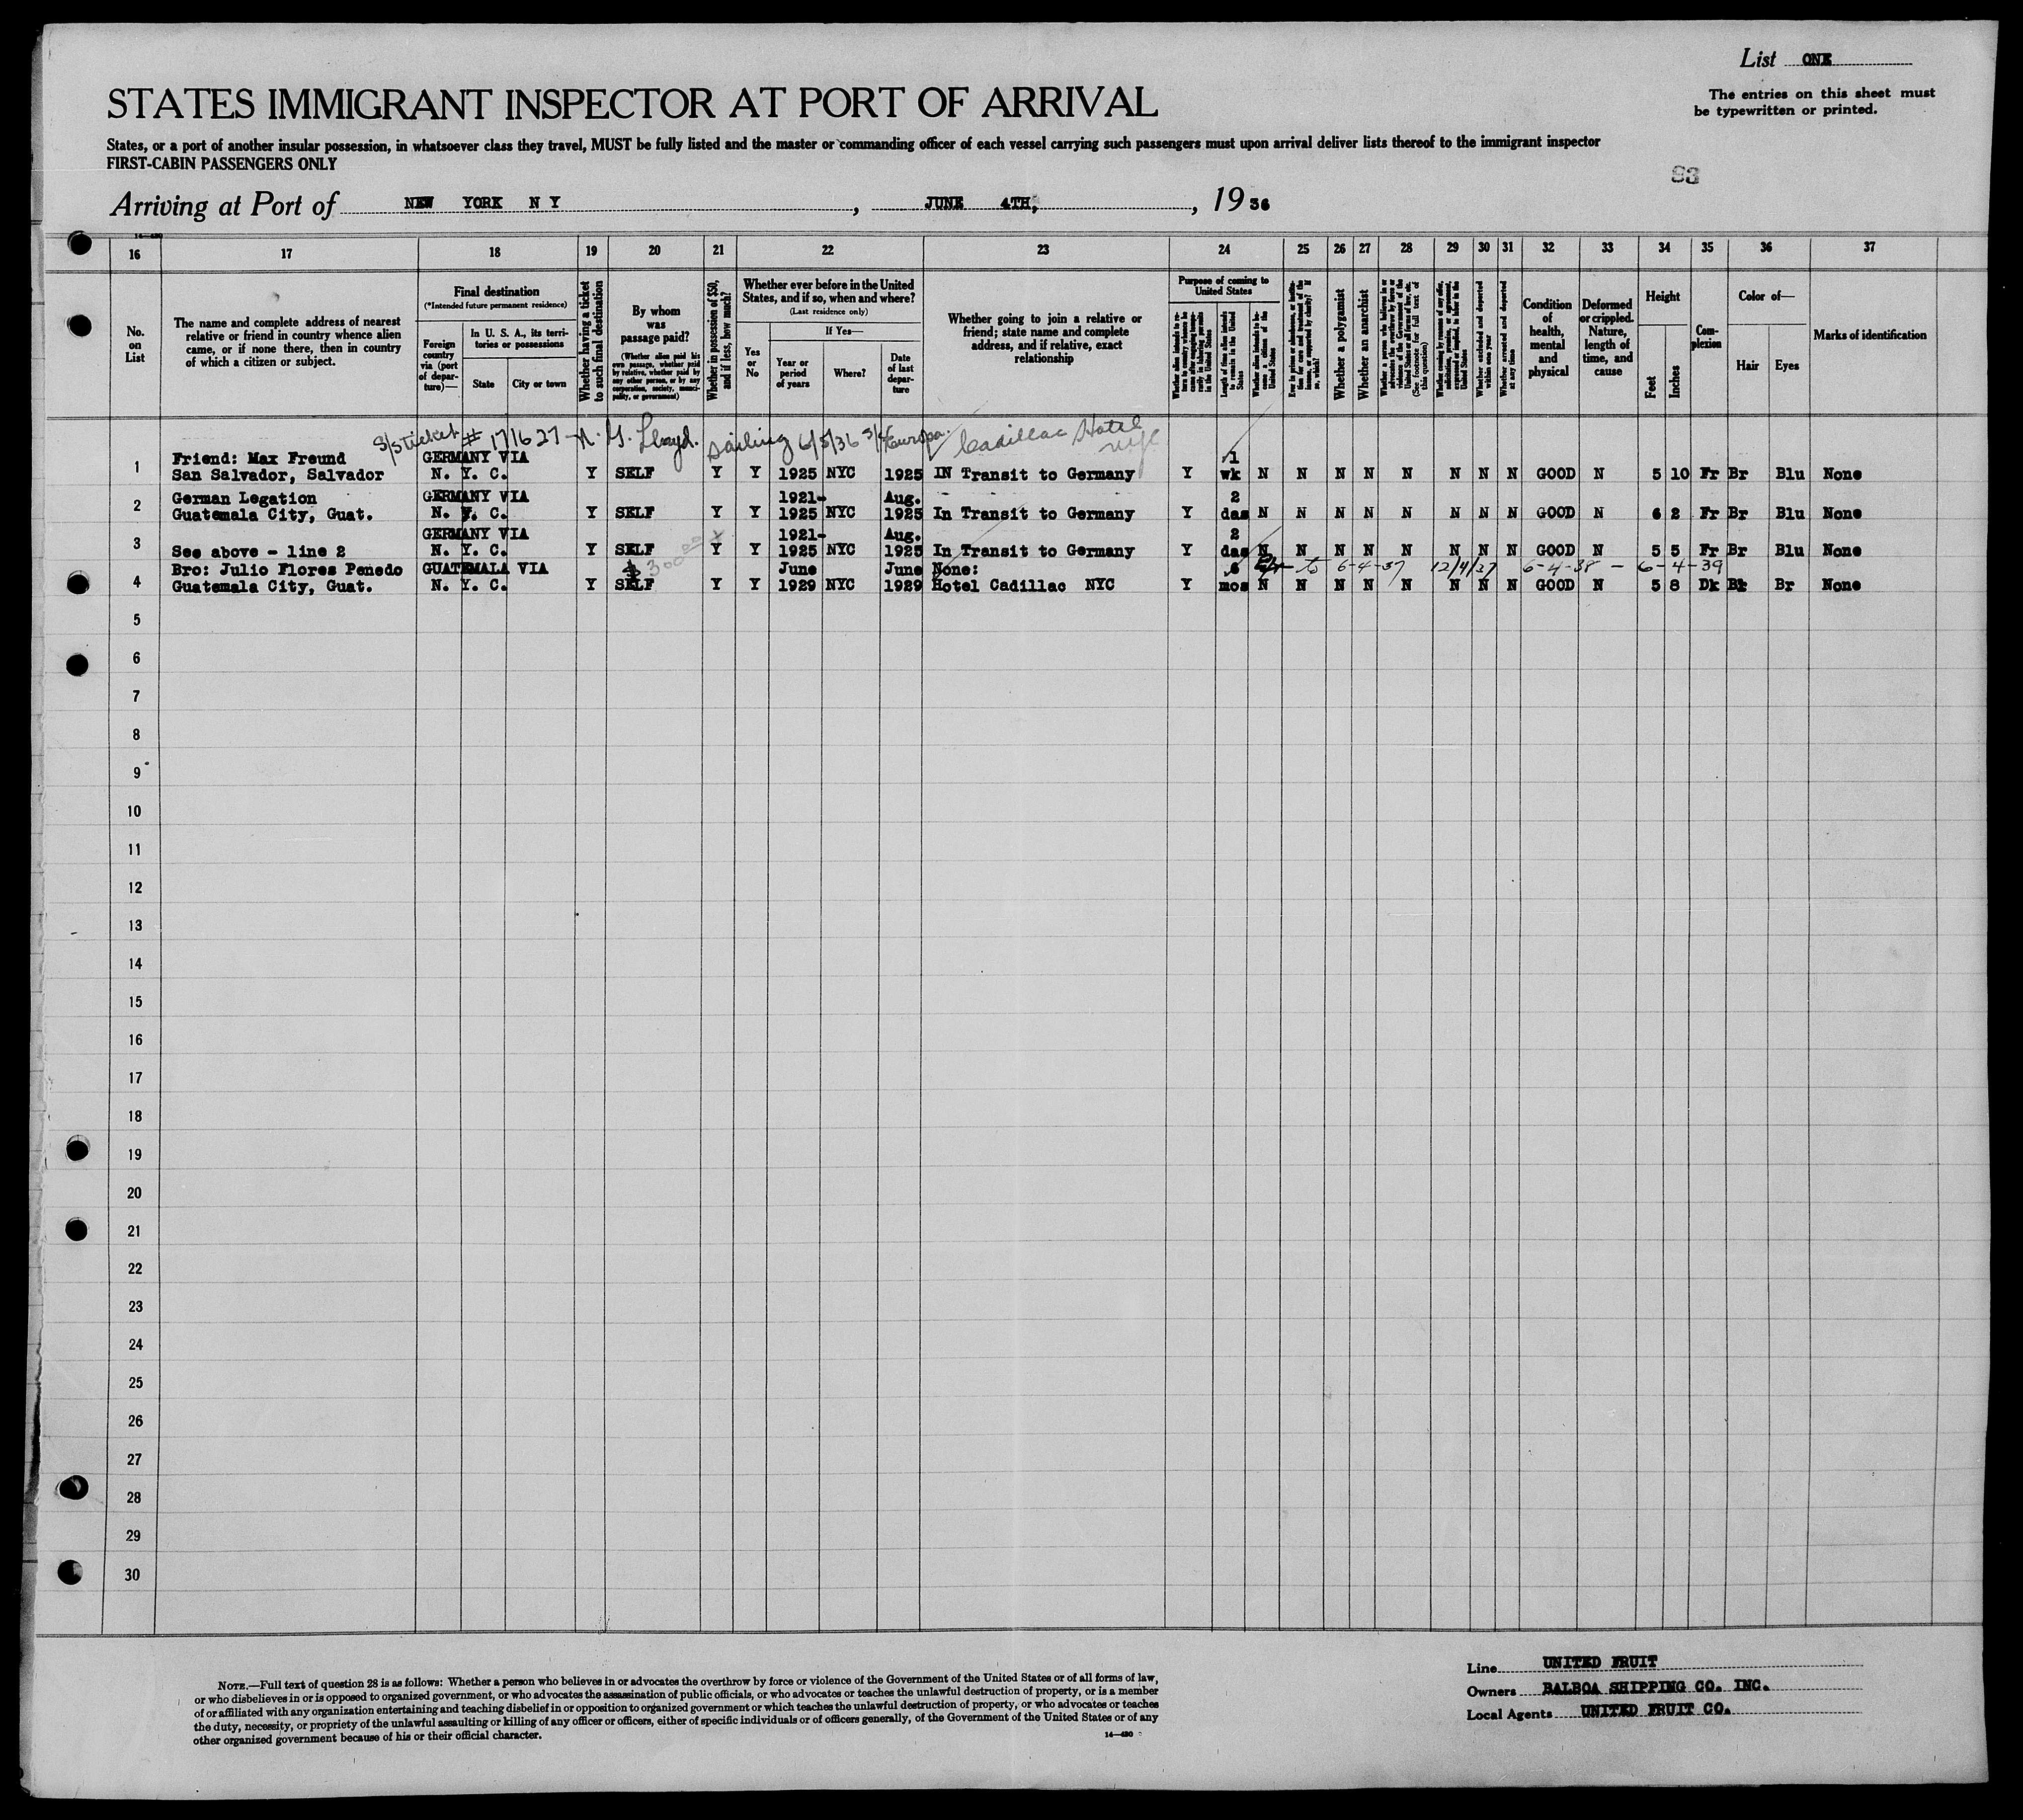 List ONE
The entries on this sheet must
be typewritten or printed.
STATES IMMIGRANT INSPECTOR AT PORT OF ARRIVAL
States, or a port of another insular possession, in whatsoever class they travel, MUST be fully listed and the master or commanding officer of each vessel carrying such passengers must upon arrival deliver lists thereof to the immigrant inspector
FIRST-CABIN PASSENGERS ONLY
83
Arriving at Port of NEW YORK N Y, JUNE 4TH, 1936
16 17 18 19 20 21 22 23 24 25 26 27 28 29 30 31 32 33 34 35 36 37
No. on List
The name and complete address of nearest relative or friend in country whence alien came, or if none there, then in country of which a citizen or subject.
Final destination
(*Intended future permanent residence)
Foreign country via (port of departure)—
In U. S. A., its territories or possessions
State
City or town
Whether having a ticket to such final destination
By whom was passage paid?
(Whether alien paid his own passage, whether paid by relative, whether paid by any other person, or by any corporation, society, municipality, or government)
Whether in possession of $50, and if less, how much?
Whether ever before in the United States, and if so, when and where?
(Last residence only)
If Yes—
Yes or No
Year or period of years
Where?
Date of last departure
Whether going to join a relative or friend; state name and complete address, and if relative, exact relationship
Purpose of coming to United States
Length of time alien intends to remain in the United States
Whether alien intends to become a citizen of the United States
Whether a polygamist
Whether an anarchist
Whether excluded and deported within one year
Whether arrested and deported at any time
Condition of health, mental and physical
Deformed or crippled. Nature, length of time, and cause
Height
Feet
Inches
Complexion
Color of—
Hair
Eyes
Marks of identification
S/S ticket # 171627 N. G. Lloyd. sailing 6/5/36 S/S Europa. Cadillac Hotel nyc
Friend: Max Freund GERMANY VIA 1
1 San Salvador, Salvador N. Y. C. Y SELF Y Y 1925 NYC 1925 IN Transit to Germany Y wk N N N N N N N N GOOD N 5 10 Fr Br Blu None
German Legation GERMANY VIA 1921- Aug. 2
2 Guatemala City, Guat. N. Y. C. Y SELF Y Y 1925 NYC 1925 In Transit to Germany Y das N N N N N N N N GOOD N 6 2 Fr Br Blu None
GERMANY VIA 1921- Aug. 2
3 See above - line 2 N. Y. C. Y SELF Y Y 1925 NYC 1925 In Transit to Germany Y das N N N N N N N N GOOD N 5 5 Fr Br Blu None
Bro: Julio Flores Penedo GUATEMALA VIA $300 June June None: 6 to 6-4-37 12/4/37 6-4-38 - 6-4-39
4 Guatemala City, Guat. N. Y. C. Y SELF Y Y 1929 NYC 1929 Hotel Cadillac NYC Y mos N N N N N N N N GOOD N 5 8 Dk Bk Br None
5
6
7
8
9
10
11
12
13
14
15
16
17
18
19
20
21
22
23
24
25
26
27
28
29
30
NOTE.—Full text of question 28 is as follows: Whether a person who believes in or advocates the overthrow by force or violence of the Government of the United States or of all forms of law,
or who disbelieves in or is opposed to organized government, or who advocates the assassination of public officials, or who advocates or teaches the unlawful destruction of property, or is a member
of or affiliated with any organization entertaining and teaching disbelief in or opposition to organized government or which teaches the unlawful destruction of property, or who advocates or teaches
the duty, necessity, or propriety of the unlawful assaulting or killing of any officer or officers, either of specific individuals or of officers generally, of the Government of the United States or of any
other organized government because of his or their official character.
14—430
Line UNITED FRUIT
Owners BALBOA SHIPPING CO. INC.
Local Agents UNITED FRUIT CO.